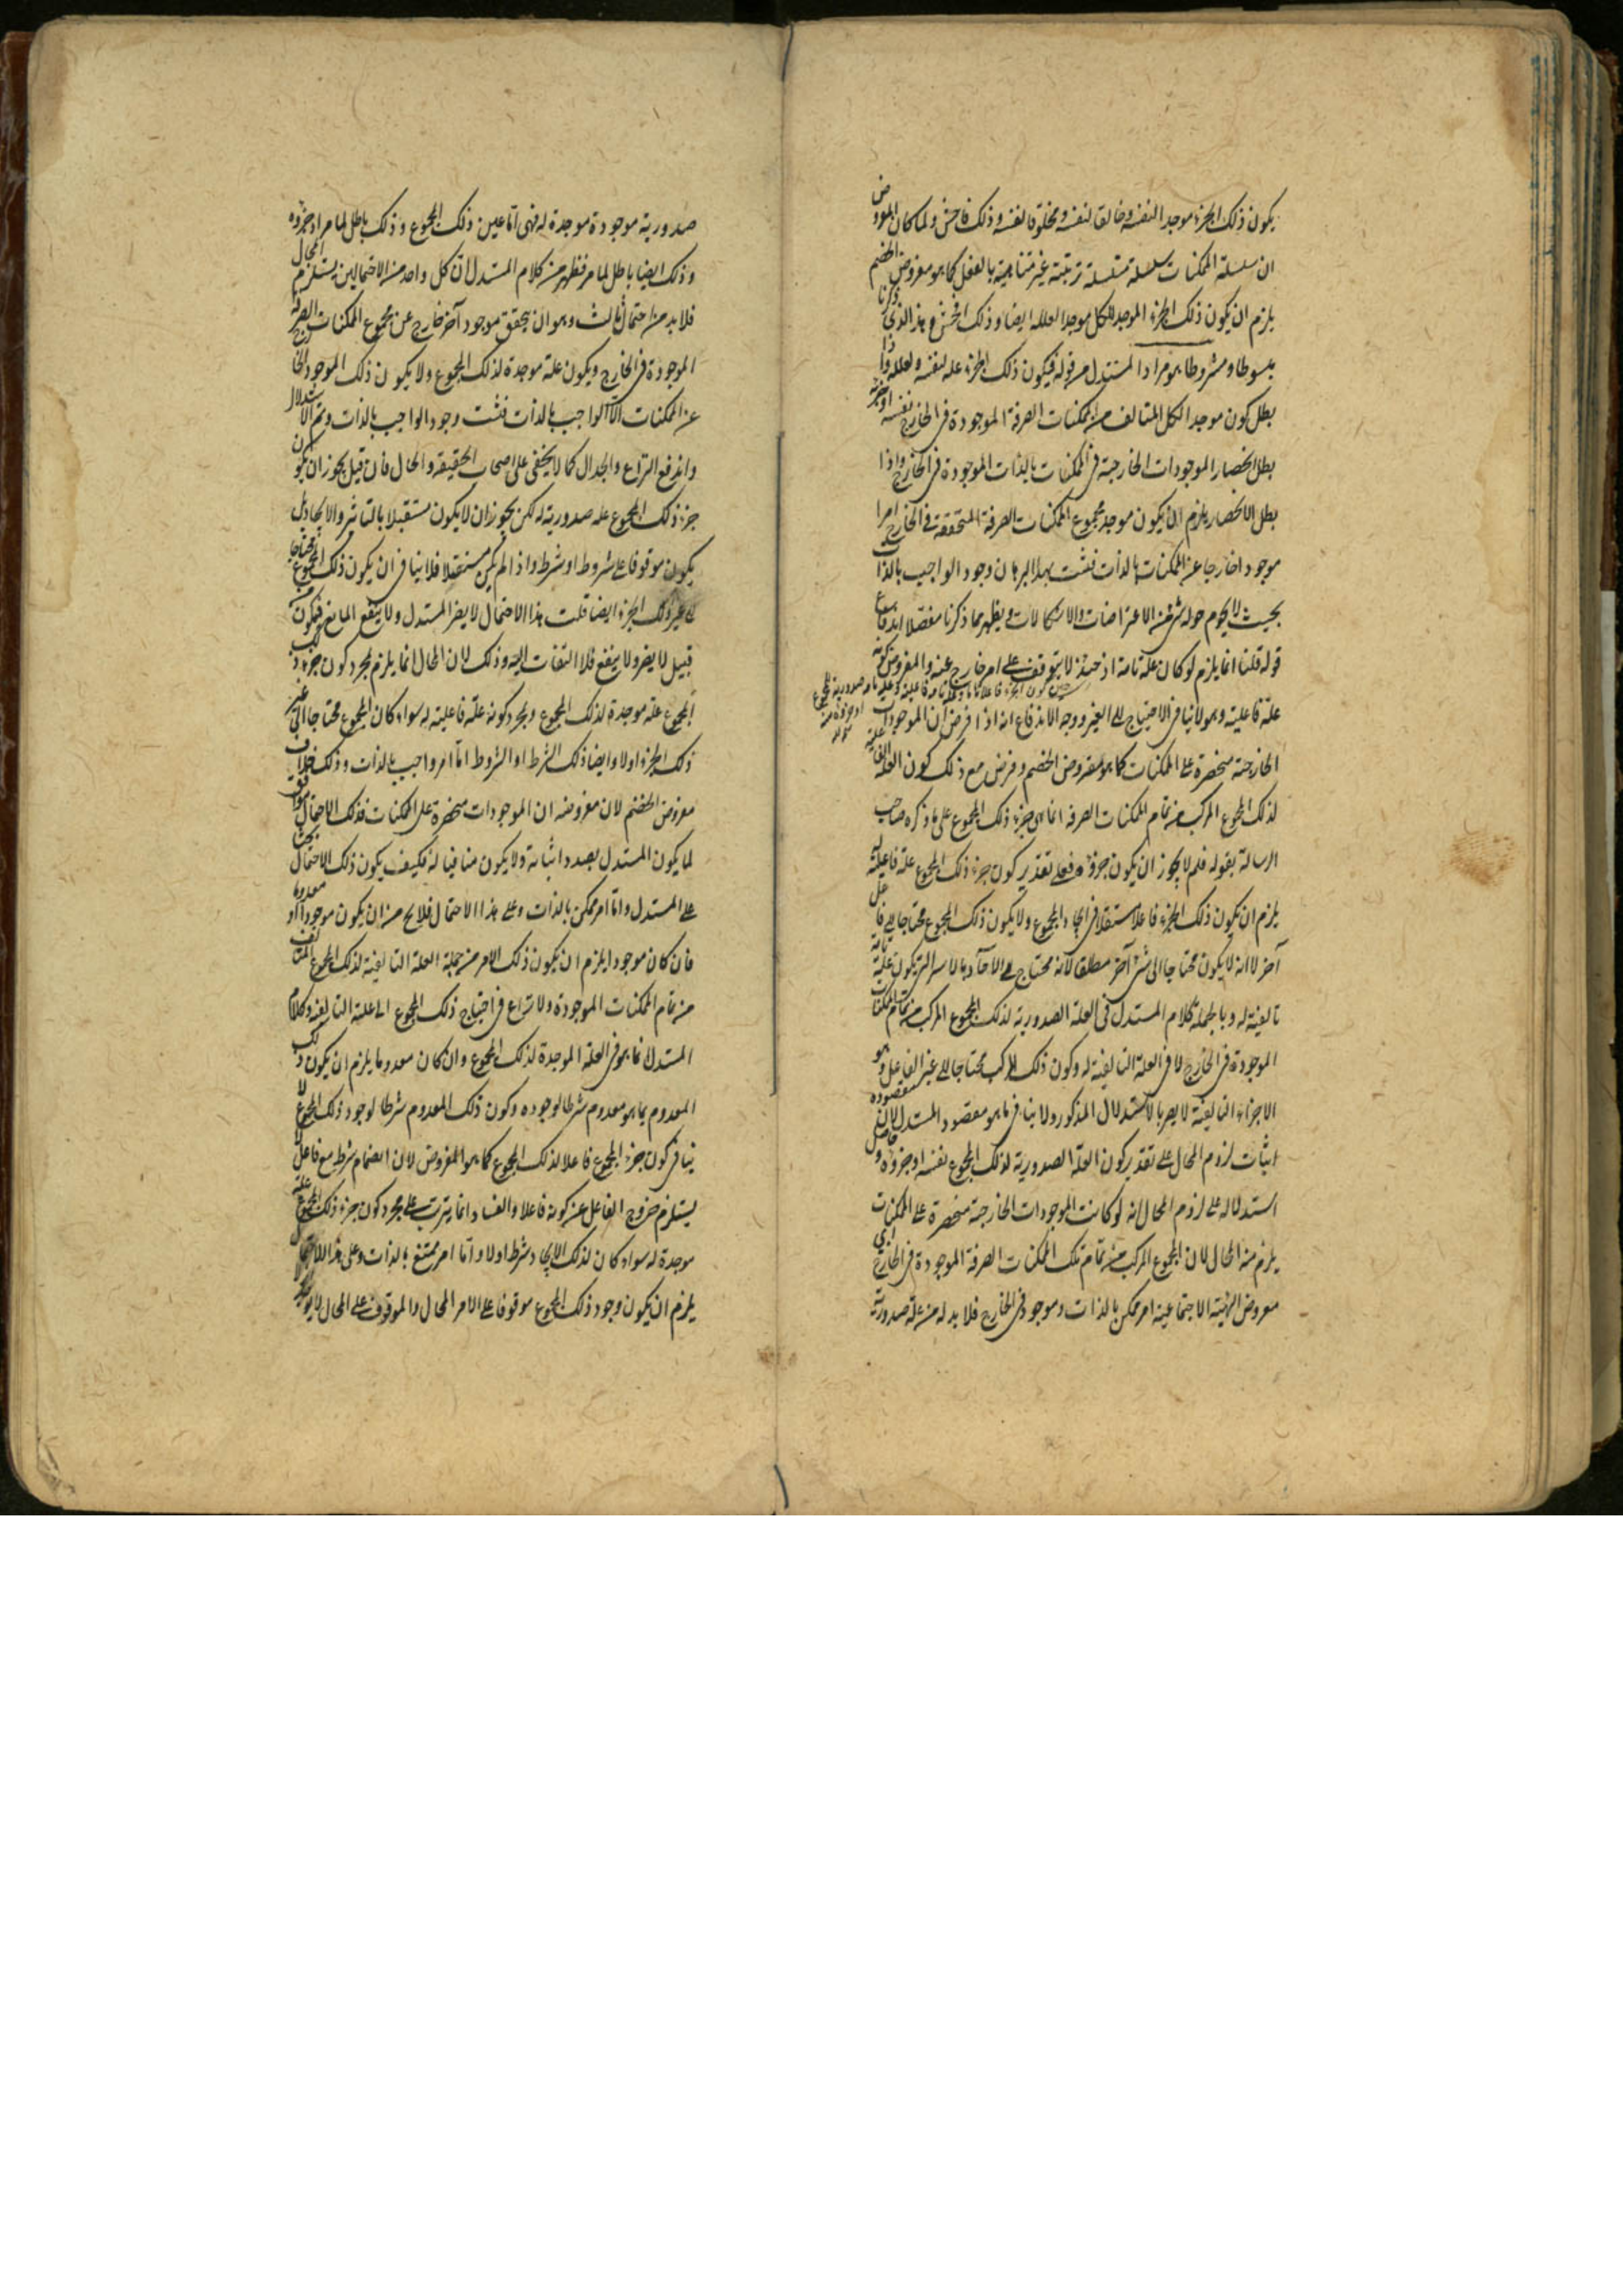 يكون ذلك الجزء موجدا لنفسه وخالقا لنفسه ومخلوقا لنفسه وذلك فاحش ولما كان المفروض
ان سلسلة الممكنات سلسلة متسلسلة مترتبة غير متناهية بالفعل كما هو مفروض الخصم
يلزم ان يكون ذلك الجزء الموجد للكل موجدا لعلله ايضا وذلك افحش وهذا الذي ذكرنا
مبسوطا ومشروطا هو مراد المستدل من قوله فيكون ذلك الجزء علة لنفسه ولعلله واذا
بطل كون موجد الكل المتالف من الممكنات الصرفة الموجودة في الخارج نفسه او جزئه
بطل انحصار الموجودات الخارجية في الممكنات بالذات الموجودة في الخارج واذا
بطل الانحصار يلزم ان يكون موجد مجموع الممكنات الصرفة المتحققة في الخارج امرا
موجودا خارجا عن الممكنات بالذات فثبت بهذا البرهان وجود الواجب بالذات
بحيث لا يحوم حوله شيء من الاعتراضات والاشكالات ويظهر مما ذكرنا مفصلا اندفاع
قوله قلنا انما يلزم لو كان علة تامة اذ حينئذ لا يتوقف على امر خارج عنه والمفروض كونه
علة فاعلية وهو لا ينافي الاحتياج الى الغير ووجه الاندفاع انه اذا فرض ان الموجودات
الخارجية منحصرة على الممكنات كما هو مفروض الخصم وفرض مع ذلك كون العلة الفاعلية
لذلك المجموع المركب من تمام الممكنات الصرفة انما هي جزء ذلك المجموع على ما ذكره صاحب
الرسالة بقوله فلم لا يجوز ان يكون جزؤه فعلى تقدير كون جزء ذلك المجموع علة فاعلية له
يلزم ان يكون ذلك الجزء فاعلا مستقلا في ايجاد المجموع ولا يكون ذلك المجموع محتاجا الى فاعل
آخر لا انه لا يكون محتاجا الى شيء آخر مطلقا لانه محتاج الى الآحاد بالاسر التي تكون علة
تاليفية له وبالجملة كلام المستدل في العلة الصدورية لذلك المجموع المركب من تمام الممكنات
الموجودة في الخارج لا في العلة التاليفية له وكون ذلك المركب محتاجا الى غير الفاعل وهو
الاجزاء التاليفية لا يضر بالاستدلال المذكور ولا ينافي ما هو مقصود المستدل لان مقصوده
اثبات لزوم المحال على تقدير كون العلة الصدورية لذلك المجموع نفسه او جزؤه وحاصل
استدلاله على لزوم المحال انه لو كانت الموجودات الخارجية منحصرة على الممكنات
يلزم منه المحال لان المجموع المركب من تمام تلك الممكنات الصرفة الموجودة في الخارج
معروض الهيئة الاجتماعية امر ممكن بالذات وموجود في الخارج فلا بد له من علة صدورية
صدورية موجودة موجدة له فهي اما عين ذلك المجموع وذلك باطل لما مر او جزؤه
وذلك ايضا باطل لما مر فظهر من كلام المستدل ان كل واحد من الاحتمالين يستلزم المحال
فلا بد من احتمال ثالث وهو ان يتحقق موجود آخر خارج عن مجموع الممكنات الصرفة
الموجودة في الخارج ويكون علة موجدة لذلك المجموع ولا يكون ذلك الموجود الخارج
عن الممكنات الا الواجب بالذات فثبت وجود الواجب بالذات وتم الاستدلال
واندفع النزاع والجدال كما لا يخفى على اصحاب الحقيقة والحال فان قيل يجوز ان يكون
جزء ذلك المجموع علة صدورية له لكن يجوز ان لا يكون مستقلا بالتاثير والايجاد بل
يكون موقوفا على شروط او شرط واذا لم يكن مستقلا فلا ينافي ان يكون ذلك المجموع محتاجا
الى غير ذلك الجزء ايضا قلت هذا الاحتمال لا يضر المستدل ولا ينفع المانع فيكون من
قبيل لا يضر ولا ينفع فلا التفات اليه وذلك لان المحال انما يلزم بمجرد كون جزء ذلك
المجموع علة موجدة لذلك المجموع وبمجرد كونه علة فاعلية له سواء كان المجموع محتاجا الى غير
ذلك الجزء اولا وايضا ذلك الشرط او الشروط اما امر واجب بالذات وذلك خلاف
مفروض الخصم لان مفروضه ان الموجودات منحصرة على الممكنات فذلك الاحتمال موافق
لما يكون المستدل بصدد اثباته ولا يكون منافيا له فكيف يكون ذلك الاحتمال بحثا
على المستدل واما امر ممكن بالذات وعلى هذا الاحتمال فلا يخ من ان يكون موجودا او معدوما
فان كان موجودا يلزم ان يكون ذلك الامر من جملة العلة التاليفية لذلك المجموع المتالف
من تمام الممكنات الموجودة ولا نزاع في احتياج ذلك المجموع الى علته التاليفية وكلام
المستدل انما هو في العلة الموجدة لذلك المجموع وان كان معدوما يلزم ان يكون ذلك
المعدوم بما هو معدوم شرطا لوجوده وكون ذلك المعدوم شرطا لوجود ذلك المجموع لا
ينافي كون جزء المجموع فاعلا لذلك المجموع كما هو المفروض لان انضمام شرط مع فاعل لا
يستلزم خروج الفاعل عن كونه فاعلا والفساد انما يترتب على مجرد كون جزء ذلك المجموع علة
موجدة له سواء كان لذلك الايجاد شرط اولا واما امر ممتنع بالذات وعلى هذا الاحتمال
يلزم ان يكون وجود ذلك المجموع موقوفا على الامر المحال والموقوف على المحال لا يوجد